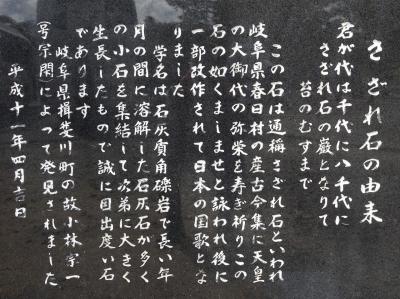 さざれ石の由来
君が代は千代に八千代に
さざれ石の巌となりて
苔のむすまで
この石は通稱さざれ石といわれ
岐阜県春日村の産古今集に天皇
の大御代の弥栄を寿ぎ祈りこの
石の如くましませと詠われ後に
一部改作されて日本の国歌とな
りました
学名は石灰質角礫岩で長い年
月の間に溶解した石灰石が多く
の小石を集結して次第に大きく
生長したもので誠に目出度い石
であります
岐阜県揖斐川町の故小林宗一
(号宗閑によって発見されました
平成十一年四月吉日